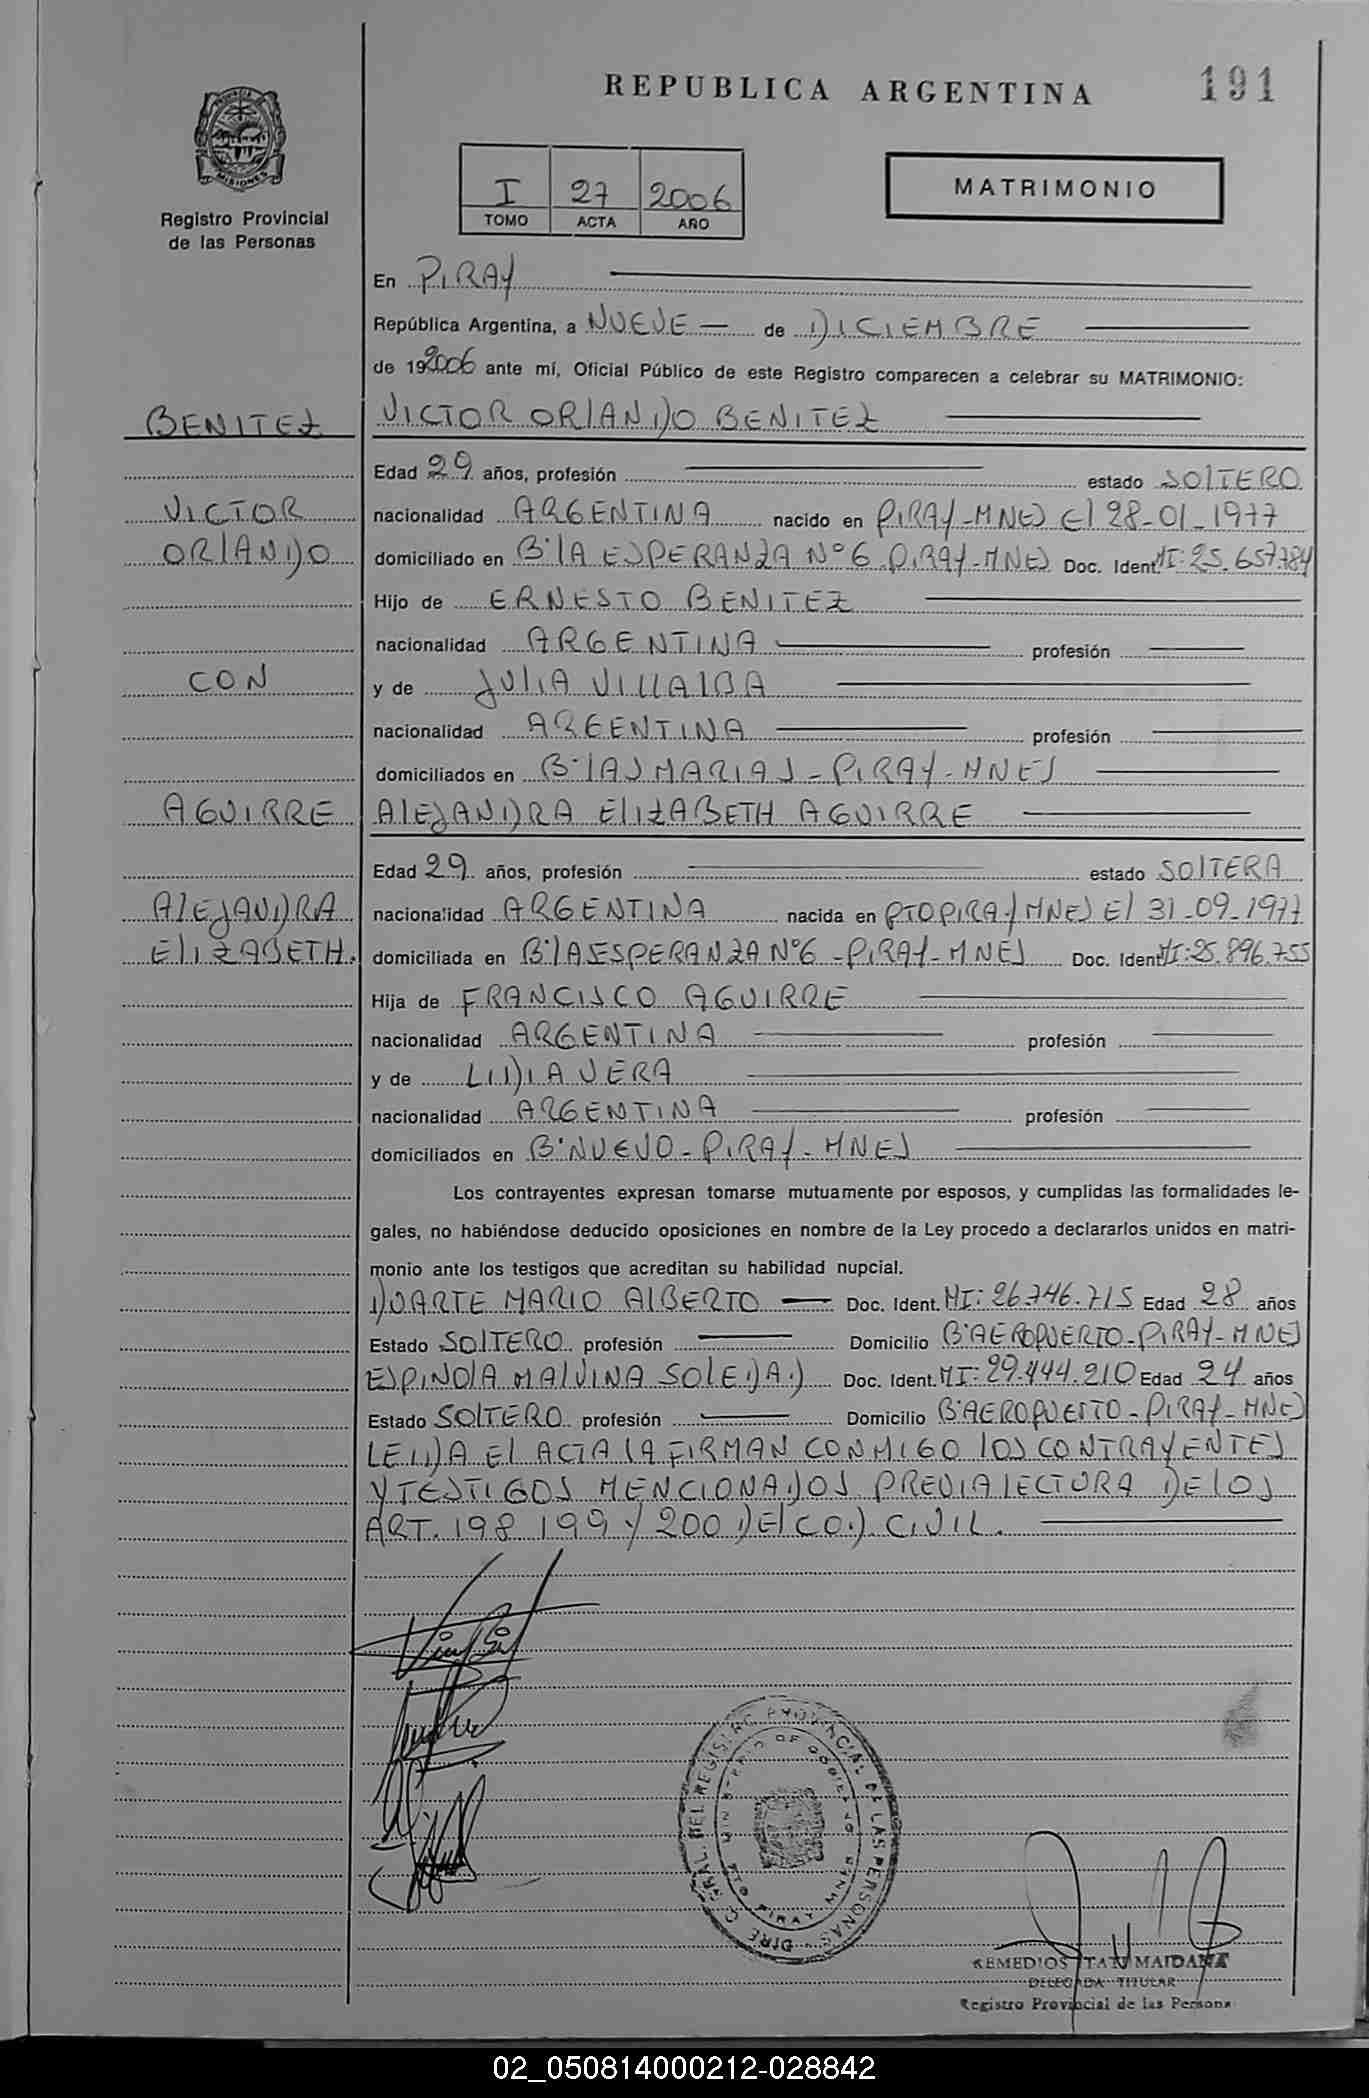 REPUBLICA ARGENTINA
191
PROVINCIA DE
MISIONES
Registro Provincial
de las Personas
I 27 2006
TOMO ACTA AÑO
MATRIMONIO
En PIRAY
República Argentina, a NUEVE de DICIEMBRE
de 192006 ante mí, Oficial Público de este Registro comparecen a celebrar su MATRIMONIO:
BENITEZ VICTOR ORLANDO BENITEZ
Edad 29 años, profesión estado SOLTERO
VICTOR nacionalidad ARGENTINA nacido en PIRAY-MNES El 28-01-1977
ORLANDO domiciliado en B: LA ESPERANZA Nº 6 PIRAY-MNES Doc. Ident. MI: 25.657.784
Hijo de ERNESTO BENITEZ
nacionalidad ARGENTINA profesión
CON y de JULIA VILLALBA
nacionalidad ARGENTINA profesión
domiciliados en B: LAS MARIAS - PIRAY - MNES
AGUIRRE ALEJANDRA ELIZABETH AGUIRRE
Edad 29 años, profesión estado SOLTERA
ALEJANDRA nacionalidad ARGENTINA nacida en PTO PIRAY MNES El 31-09-1977
ELIZABETH. domiciliada en B: LA ESPERANZA Nº6 - PIRAY - MNES Doc. Ident. MI: 25.896.755
Hija de FRANCISCO AGUIRRE
nacionalidad ARGENTINA profesión
y de LIDIA VERA
nacionalidad ARGENTINA profesión
domiciliados en B: NUEVO - PIRAY - MNES
Los contrayentes expresan tomarse mutuamente por esposos, y cumplidas las formalidades le-
gales, no habiéndose deducido oposiciones en nombre de la Ley procedo a declararlos unidos en matri-
monio ante los testigos que acreditan su habilidad nupcial.
DUARTE MARIO ALBERTO Doc. Ident. MI: 26.746.715 Edad 28 años
Estado SOLTERO profesión Domicilio B: AEROPUERTO - PIRAY - MNES
ESPINOLA MALVINA SOLEDAD Doc. Ident. MI: 29.444.210 Edad 24 años
Estado SOLTERO profesión Domicilio B: AEROPUERTO - PIRAY - MNES
LEIDA El ACTA LA FIRMAN CONMIGO LOS CONTRAYENTES
Y TESTIGOS MENCIONADOS PREVIA LECTURA DE LOS
ART. 198 199 Y 200 DEl COD CIVIL.
DIRE C. GRAL. DEL REGISTRO PROVINCIAL DE LAS PERSONAS
MINISTERIO DE GOBIERNO
PTO PIRAY MNES
REMEDIOS MAIDANA
DELEGADA TITULAR
Registro Provincial de las Persona
02_050814000212-028842